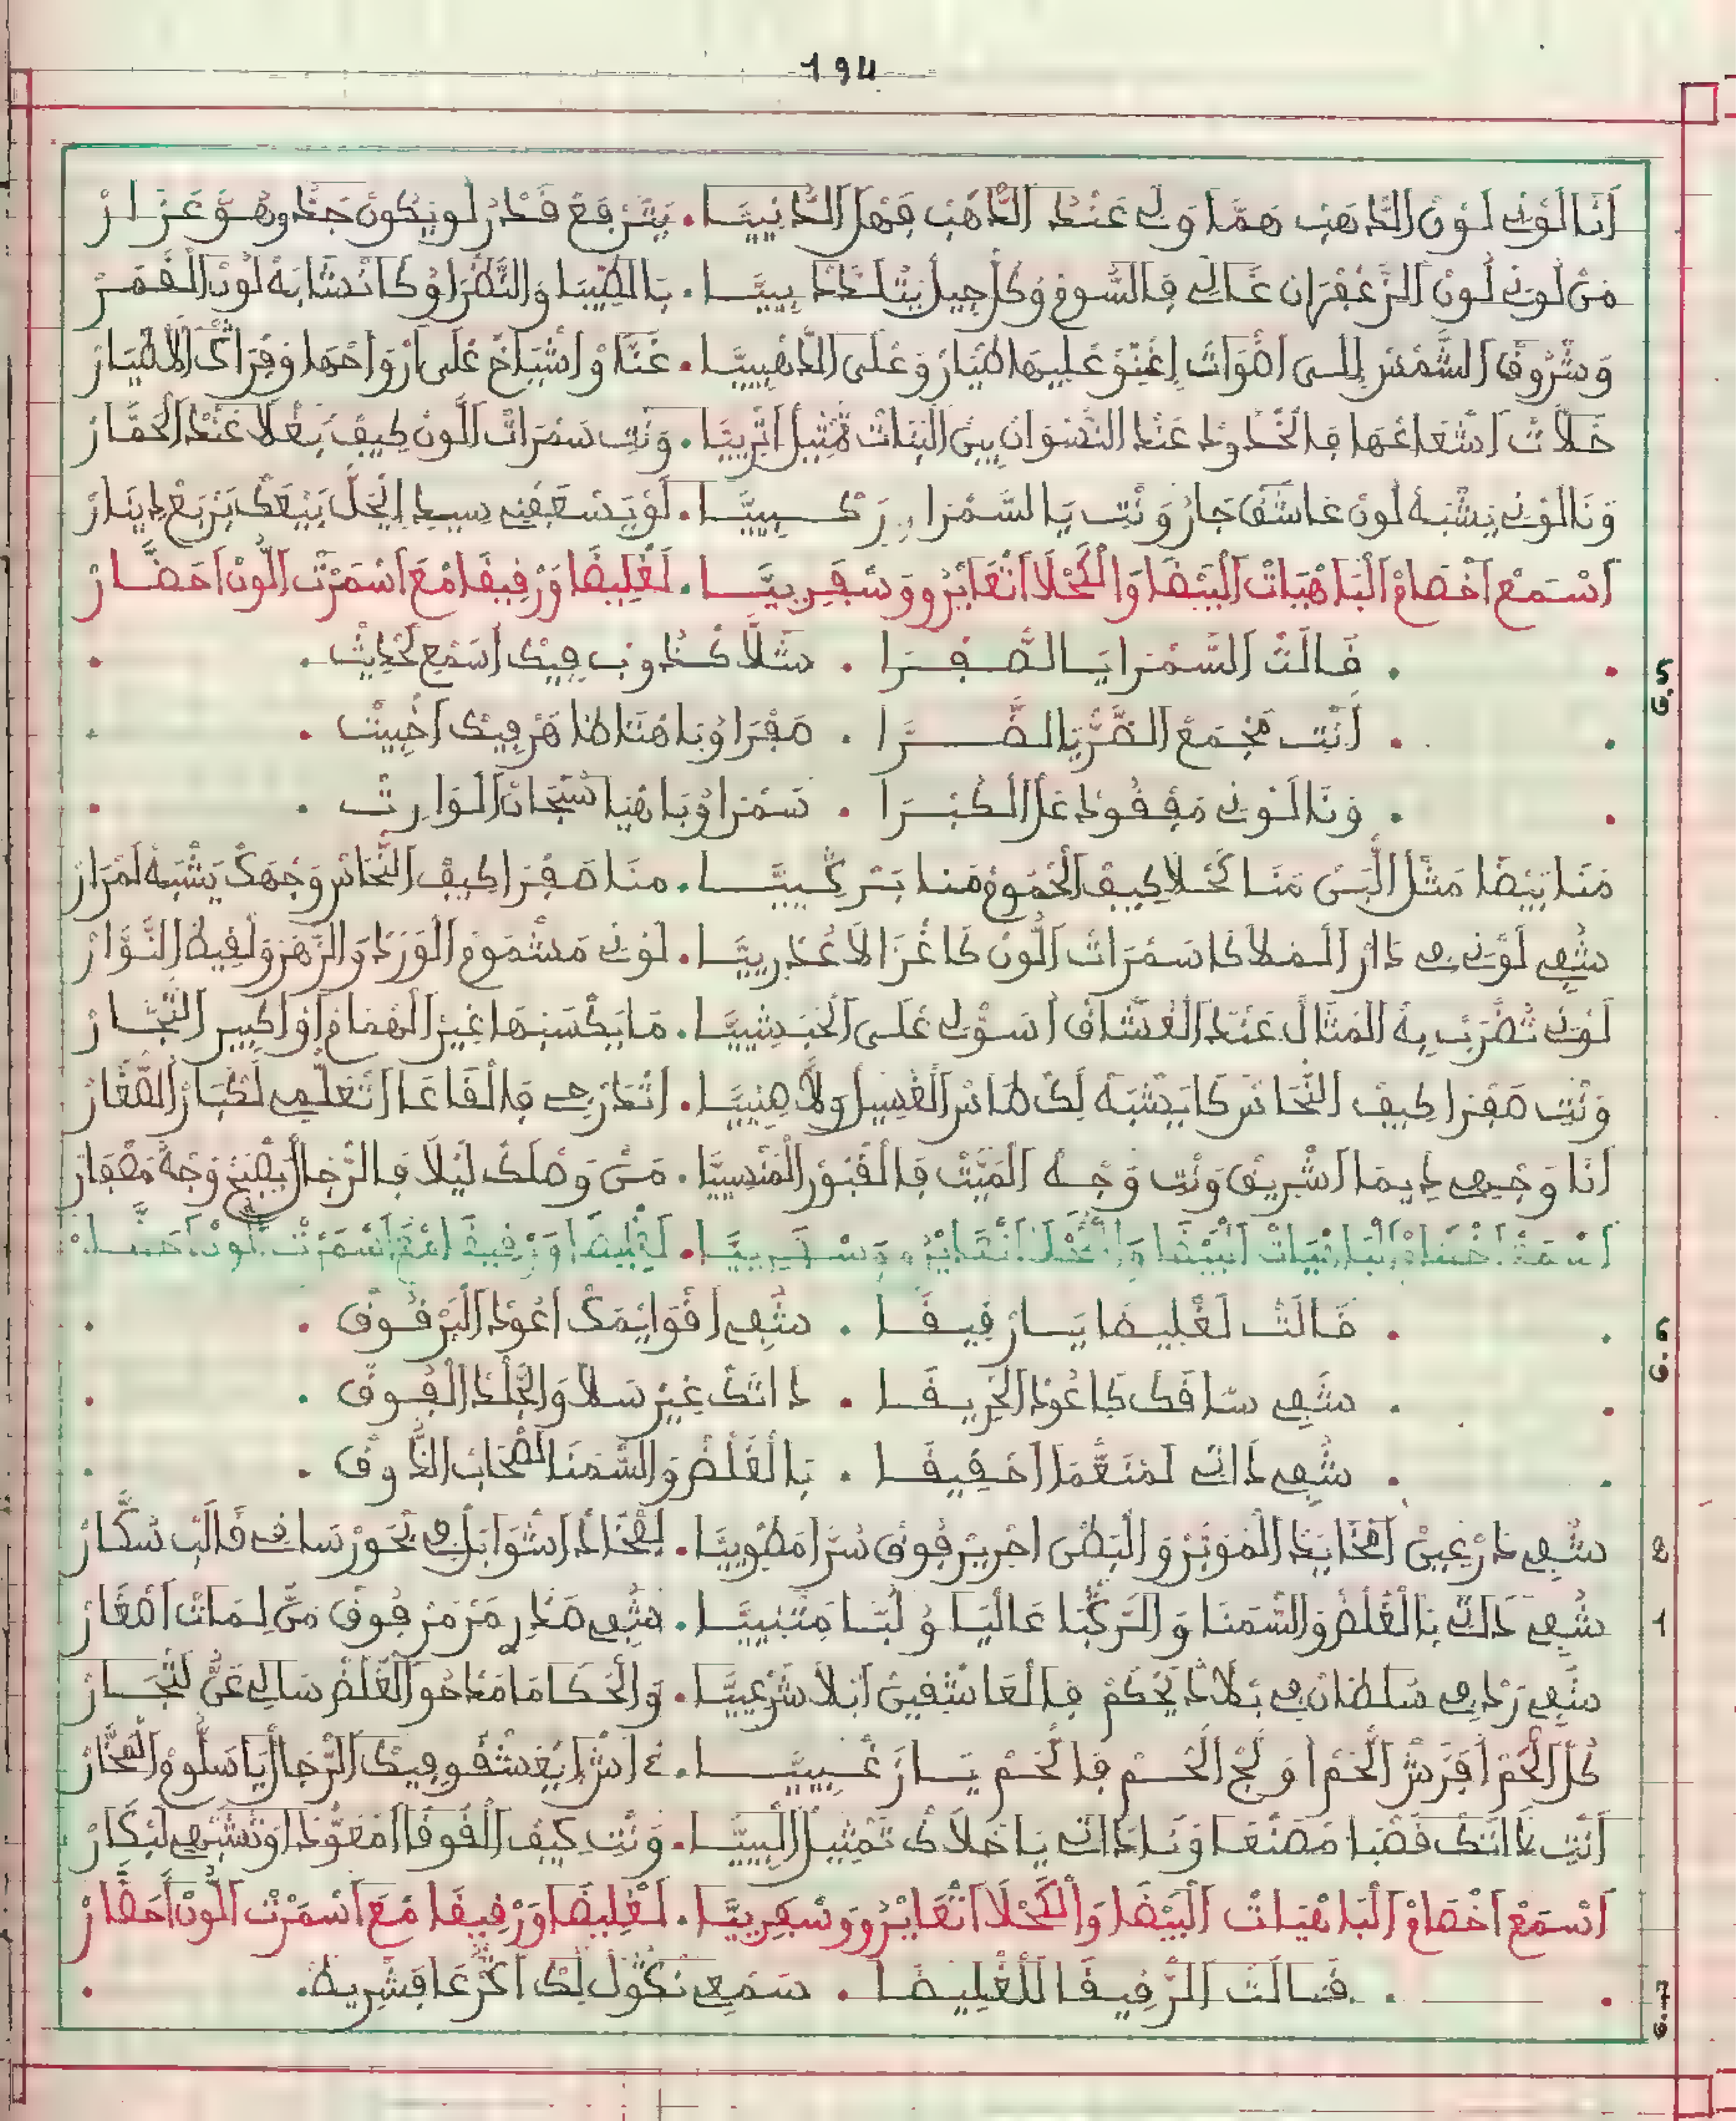 194
أنا لوني لون الذهب هما ولي عند الذهب فهل الدنييا . يترفع قدر لو يكون جد وهو غزار
من لوني لون الزعفران غالي فالسوق وكل جيل يتلذذ بييا . بالطيبا والنظرا وكا نشابه لون القمر
وشروق الشمس إلى اضوات إغنيو عليها اطيار وعلى الذهبييا . غنا واشياخ على ارواحها وفراك الاطيار
خلات اشعاعها فالخدود عند النسوان بين البنات تمثيل اترييا . ونت سمرات اللون كيف يغلا عند الحضار
ونا لوني يشبه لون عاشق جار ونت يا السمرا ركبييا . لو يسعفني سيد الخل يبيعك بربع دينار
اسمع اخصام الباهيات البيضا والكحلا اتعايرو وسفرييا . لغليضا ورقيقا مع اسمرت اللون احضار
5 ق
. قالت السمرا يا الصفرا . شلا كذوب فيك اسمع لحديث .
. أنت مجمع الضر يا الضرا . صفرا وباهتا ظاهر فيك اخبيث .
. ونا لوني مفقود عل الكبرا . سمرا وباهيا سبحان الوارث .
منا بيضا مثل اللبن منا كحلا كيف الحموم منا بتركييا . منا صفرا كيف النحاس وجهك يشبه لمرار
شفي لوني في دار الملا كا سمرات اللون كا غزالا عذرييا . لوني مشموم الورد والزهر ولفيه النوار
لوني تضرب به المثال عند العشاق اسولي على الحبشييا . ما يكسبها غير الهمام او اكبير التجار
ونت صفرا كيف النحاس كا يشبه لك طاس الغسيل ولا هنييا . اتدرجي فالقاعا اتعلمي لكبار الصغار
انا وجيهي ديما اشريق ونت وجه الميت فالقبور المنسييا . من وصلك ليلا فالرجال يصبح وجه مصفار
اسمع اخصام الباهيات البيضا والكحلا اتعايرو وسفرييا . لغليضا ورقيقا مع اسمرت اللون احضار
6 ق
. قالت لغليضا يا رقيقا . شفي اقوايمك اعود البرقوق .
. شفي ساقك كا عود الحريقا . داتك غير سلا والجلد الفوق .
. شفي داتي لمنعما احفيفا . بالغلض والسمنا لصحاب الذوق .
2 شفي درعين افخايد الموبر والبطن احرير فوق سرا مطوييا . لفخاد اشوابل في بحور ساقي قالب سكار
1 شفي داتي بالغلض والسمنا والركبا عاليا ولبا متبنييا . شفي صدر مرمر فوق من ليمات اصغار
شفي ردفي سلطان في بلاد يحكم فالعاشقين ابلا شرعييا . والحكاما مداحو الغلض سالي عن لتجار
كل اللحم افرش اللحم او لج اللحم فاللحم يا رغبييا . اش يغشقو فيك الرجال يا سلوم الفخار
أنت داتك قصبا مصنعا ونا داتي يا خلاك تمثيل البييا . ونت كيف القوقا امعودا وتشبهي لبكار
اسمع اخصام الباهيات البيضا والكحلا اتعايرو وسفرييا . لغليضا ورقيقا مع اسمرت اللون احضار
7 ق
. قالت الرقيقا للغليضا . سمعي نكول لك اكرعا فشريط .